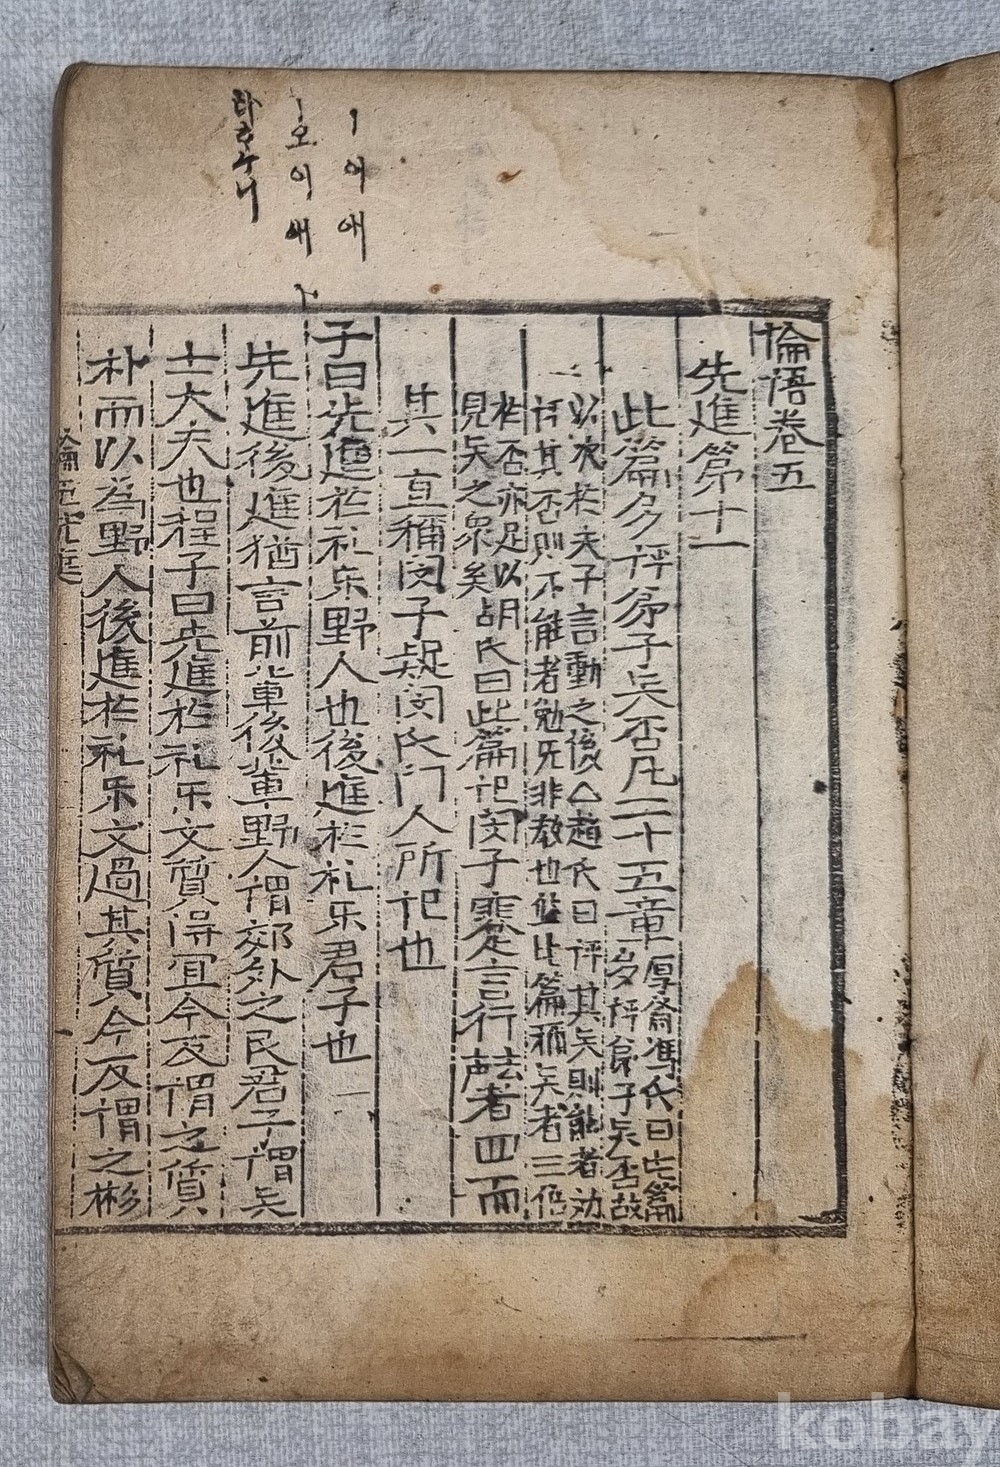 ㅣ어애
ㅣ오이애
論語卷五
先進第十一
此篇多評弟子賢否凡二十五章
厚齋馮氏曰此篇
多評弟子賢否故
以次於夫子言動之後△趙氏曰評其賢則能者劝
評其否則不能者勉无非教也然此篇稱賢者三倍
於否亦足以
見賢之衆矣
胡氏曰此篇記閔子騫言行者四而
其一直稱閔子疑閔氏門人所記也
子曰先進於礼乐野人也後進於礼乐君子也
先進後進猶言前輩後輩野人謂郊外之民君子謂賢
士大夫也程子曰先進於礼乐文質得宜今反謂之質
朴而以為野人後進於礼乐文過其質今反謂之彬
kobay